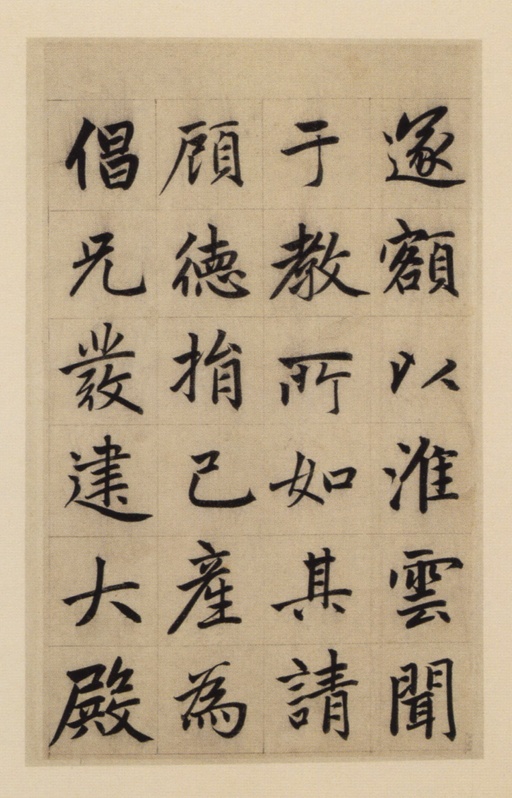 遂額以淮雲聞
于教所如其請
顧德捐己産為
倡凡叢建大殿